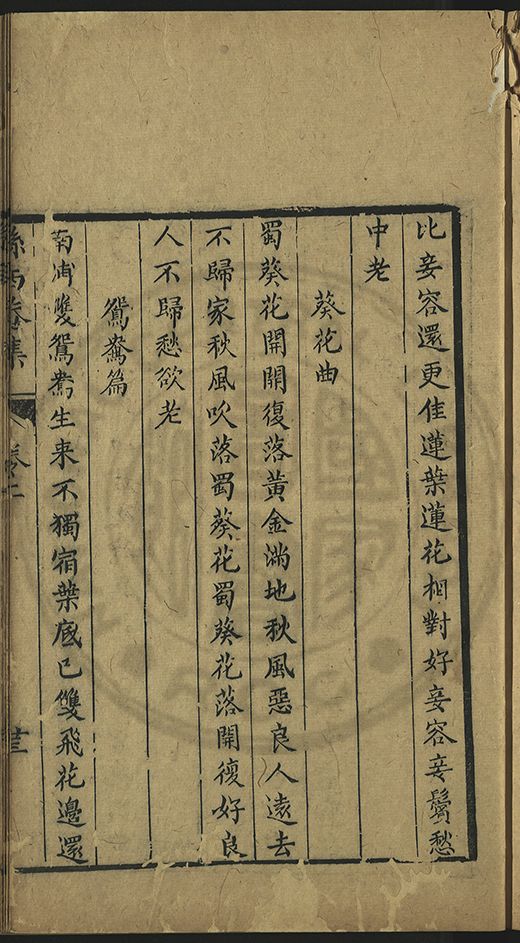 比妾容還更佳蓮葉蓮花相對好妾容妾鬢愁
中老
葵花曲
蜀葵花開開復落黃金滿地秋風惡良人遠去
不歸家秋風吹落蜀葵花蜀葵花落開復好良
人不歸愁欲老
鴛鴦篇
南浦雙鴛鴦生来不獨宿葉底已雙飛花邊還
卷二